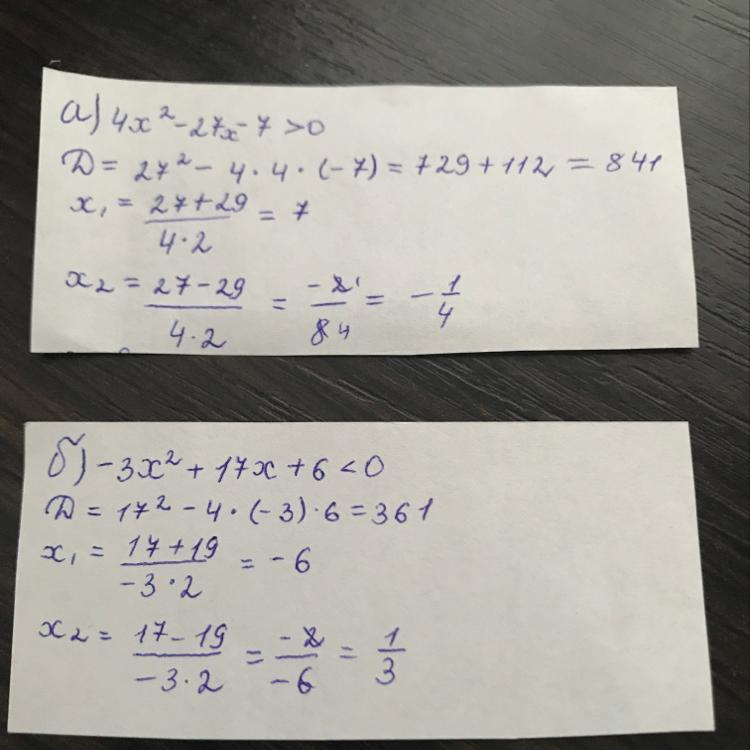 а) 4x² - 27x - 7 > 0
D = 27² - 4 · 4 · (-7) = 729 + 112 = 841
x₁ = (27+29)/(4·2) = 7
x₂ = (27-29)/(4·2) = -2/8 = -1/4
б) -3x² + 17x + 6 < 0
D = 17² - 4 · (-3) · 6 = 361
x₁ = (17+19)/(-3·2) = -6
x₂ = (17-19)/(-3·2) = -2/-6 = 1/3